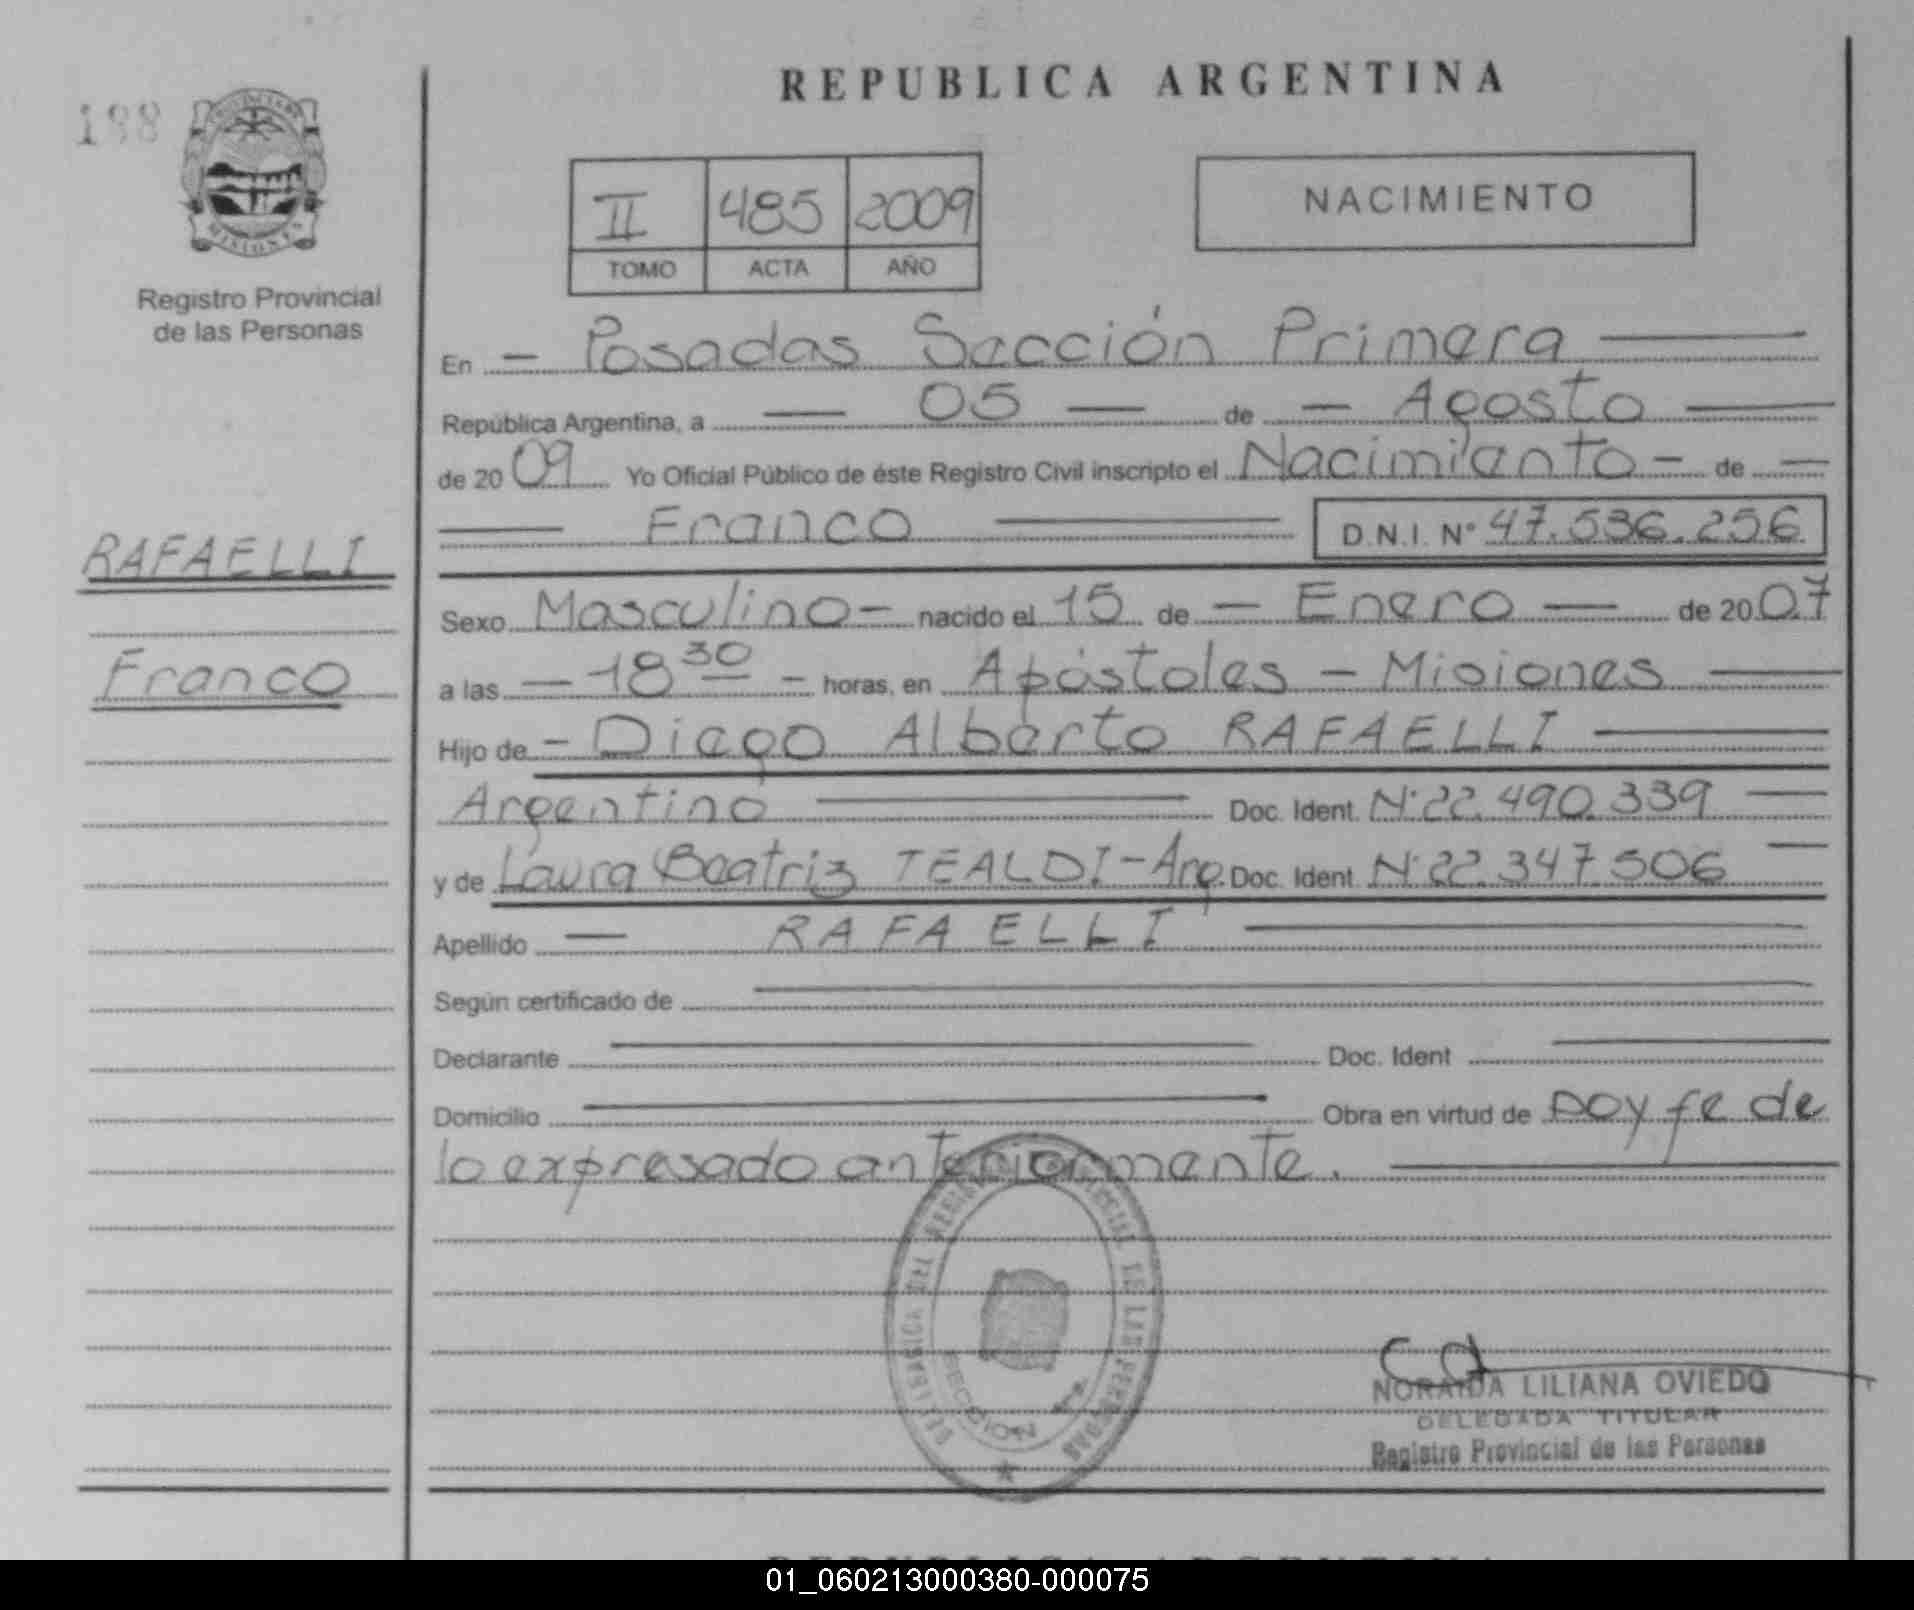 REPUBLICA ARGENTINA
188
PROVINCIA DE
MISIONES
Registro Provincial
de las Personas
II 485 2009
TOMO ACTA AÑO
NACIMIENTO
En — Posadas Sección Primera —
República Argentina, a — 05 — de — Agosto —
de 2009 Yo Oficial Público de éste Registro Civil inscripto el Nacimiento — de —
— Franco — D.N.I. N° 47.536.256
RAFAELLI
Franco
Sexo Masculino — nacido el 15 de — Enero — de 2007
a las — 18 30 — horas, en Apóstoles — Misiones —
Hijo de — Diego Alberto RAFAELLI —
Argentino — Doc. Ident. N° 22.490.339 —
y de Laura Beatriz TEALDI - Arg. Doc. Ident. N° 22.347.506 —
Apellido — RAFAELLI —
Según certificado de —
Declarante — Doc. Ident —
Domicilio — Obra en virtud de DOY fe de
lo expresado anteriormente. —
SECCION 1a
NORAIDA LILIANA OVIEDO
DELEGADA TITULAR
Registro Provincial de las Personas
01_060213000380-000075